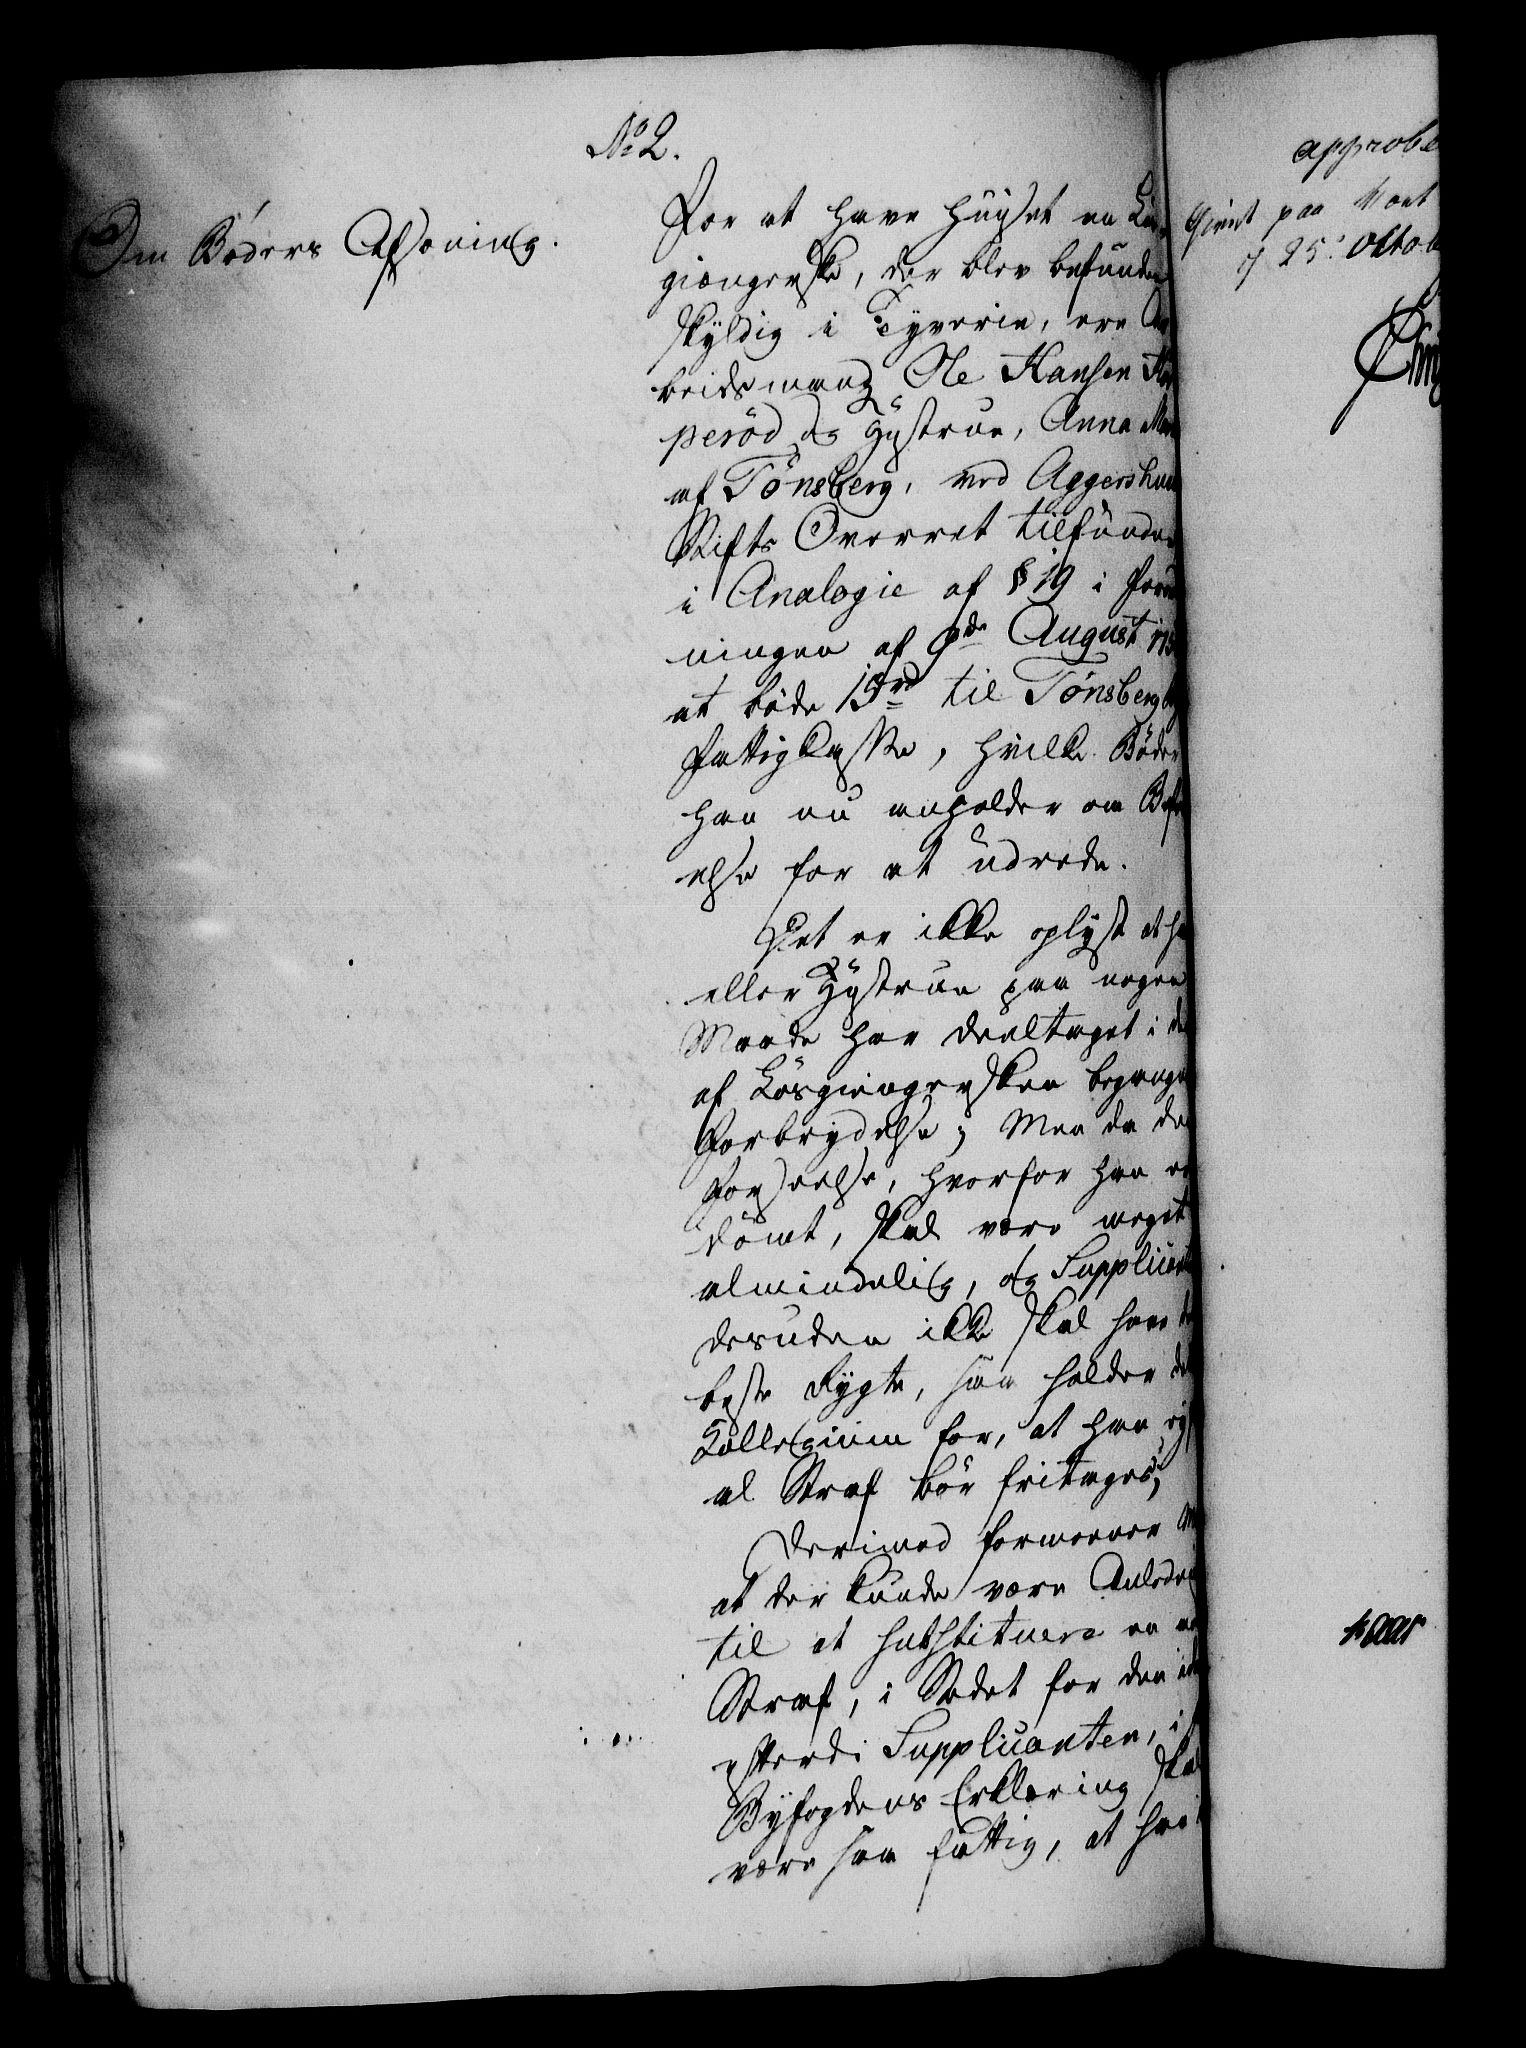 No 2.
Om Böders Afsoning.
For at have huuset en Lös
giængerske, der blev befunden
skyldig i Tyverie, ere Ar
beidsmand Ole Hansen
peröd og Hustrue, Anna
af Tönsberg, ved Aggershuus
Stifts Overret tilfunden
i Analogie af § 19 i Forord
ningen af 9de August
at böde 15 rd til Tönsberg
Fattigkasse, hvilke Böder
han nu anholder om Befri
else for at udrede.
Det er ikke oplyst at
eller Hustrue paa nogen
Maade har deeltaget i
af Lösgiængersken begangne
Forbrydelse; Men da den
Forseelse, hvorfor han er
dömt, skal være meget
almindelig, og Supplicanten
desuden ikke skal have
beste Rygte, saa holder
Collegium for, at han ej
al Straf bör fritages;
Derimod formeener
at der kunde være Anledni
til at substituere en
Straf, i Stedet for den
efterdi Supplicanten, i
Byfogdens Erklæring skal
være saa fattig, at
approbe
Givet paa Vort
d 25. Octob
Chri